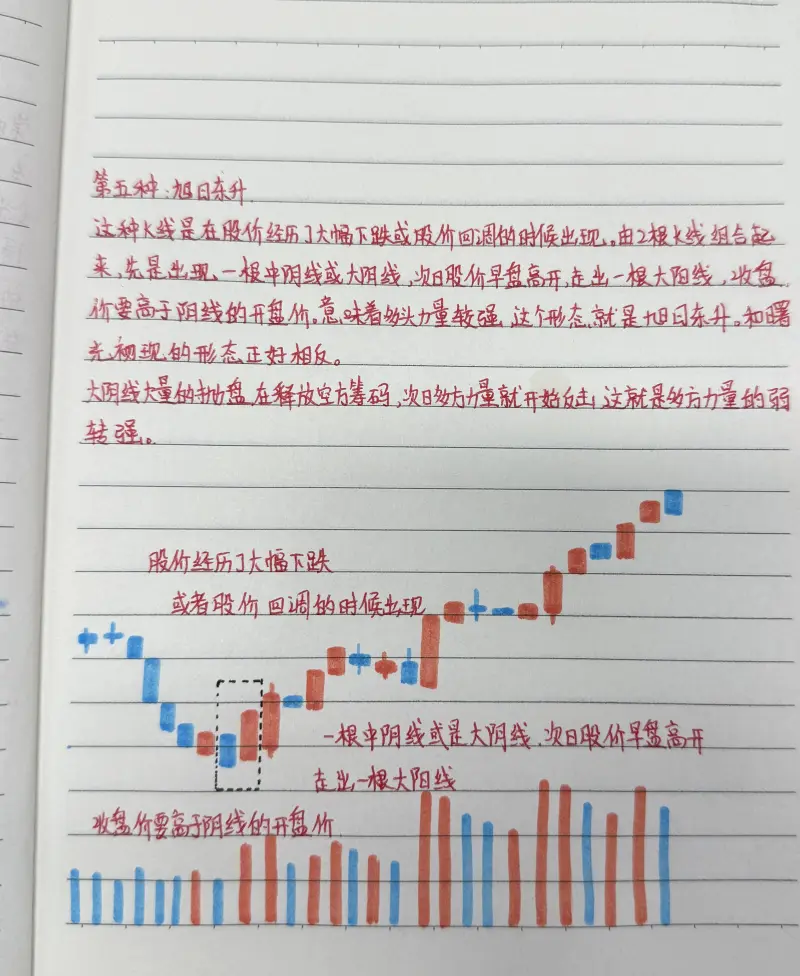 第五种:旭日东升
这种K线是在股价经历了大幅下跌或股价回调的时候出现。由2根K线组合起
来,先是出现一根中阴线或大阴线,次日股价早盘高开,走出一根大阳线,收盘
价要高于阴线的开盘价。意味着多头力量较强,这个形态就是旭日东升。和曙
光初现的形态正好相反。
大阴线大量的抛盘在释放空方筹码,次日多方力量就开始反击,这就是多方力量的弱
转强。
股价经历了大幅下跌
或者股价回调的时候出现
一根中阴线或是大阴线,次日股价早盘高开
走出一根大阳线
收盘价要高于阴线的开盘价